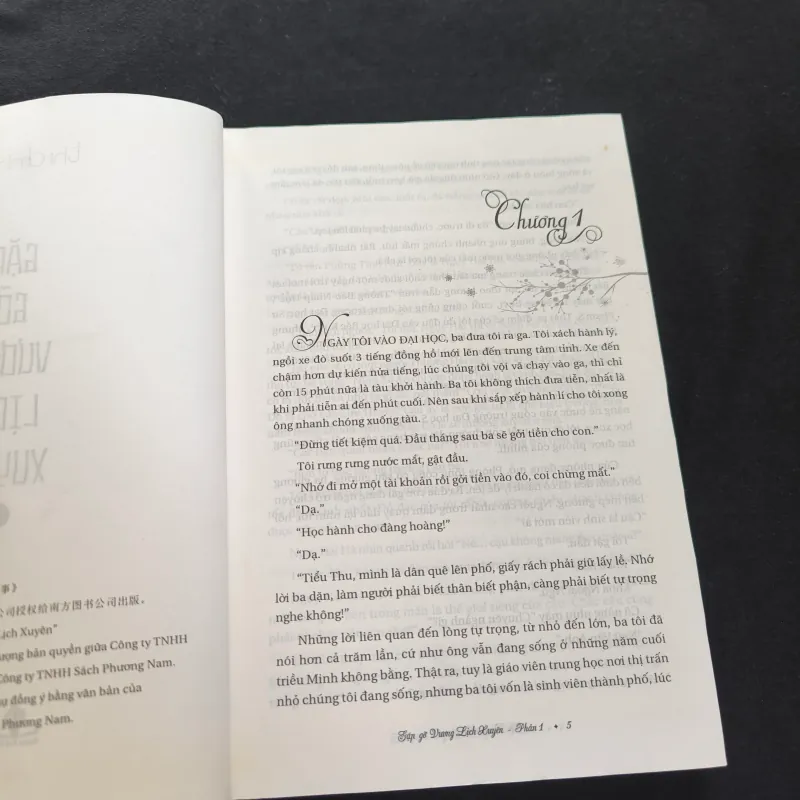 事》
公司授权给南方图书公司出版。
ịch Xuyên"
ượng bản quyền giữa Công ty TNHH
Công ty TNHH Sách Phương Nam.
ự đồng ý bằng văn bản của
Phương Nam.
Chương 1
NGÀY TÔI VÀO ĐẠI HỌC, ba đưa tôi ra ga. Tôi xách hành lý,
ngồi xe đò suốt 3 tiếng đồng hồ mới lên đến trung tâm tỉnh. Xe đến
chậm hơn dự kiến nửa tiếng, lúc chúng tôi vội vã chạy vào ga, thì chỉ
còn 15 phút nữa là tàu khởi hành. Ba tôi không thích đưa tiễn, nhất là
khi phải tiễn ai đến phút cuối. Nên sau khi sắp xếp hành lí cho tôi xong
ông nhanh chóng xuống tàu.
"Đừng tiết kiệm quá. Đầu tháng sau ba sẽ gởi tiền cho con."
Tôi rưng rưng nước mắt, gật đầu.
"Nhớ đi mở một tài khoản rồi gởi tiền vào đó, coi chừng mất."
"Dạ."
"Học hành cho đàng hoàng!"
"Dạ."
"Tiểu Thu, mình là dân quê lên phố, giấy rách phải giữ lấy lề. Nhớ
lời ba dặn, làm người phải biết thân biết phận, càng phải biết tự trọng
nghe không!"
Những lời liên quan đến lòng tự trọng, từ nhỏ đến lớn, ba tôi đã
nói hơn cả trăm lần, cứ như ông vẫn đang sống ở những năm cuối
triều Minh không bằng. Thật ra, tuy là giáo viên trung học nơi thị trấn
nhỏ chúng tôi đang sống, nhưng ba tôi vốn là sinh viên thành phố, lúc
Gặp gỡ Vương Lịch Xuyên - Phần 1 • 5